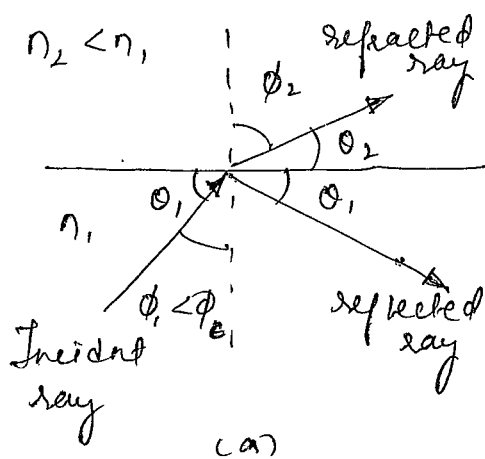 n₂ < n₁
refracted
ray
ϕ₂
θ₂
θ₁
θ₁
n₁
ϕ₁ < ϕc
Incident
ray
reflected
ray
(a)